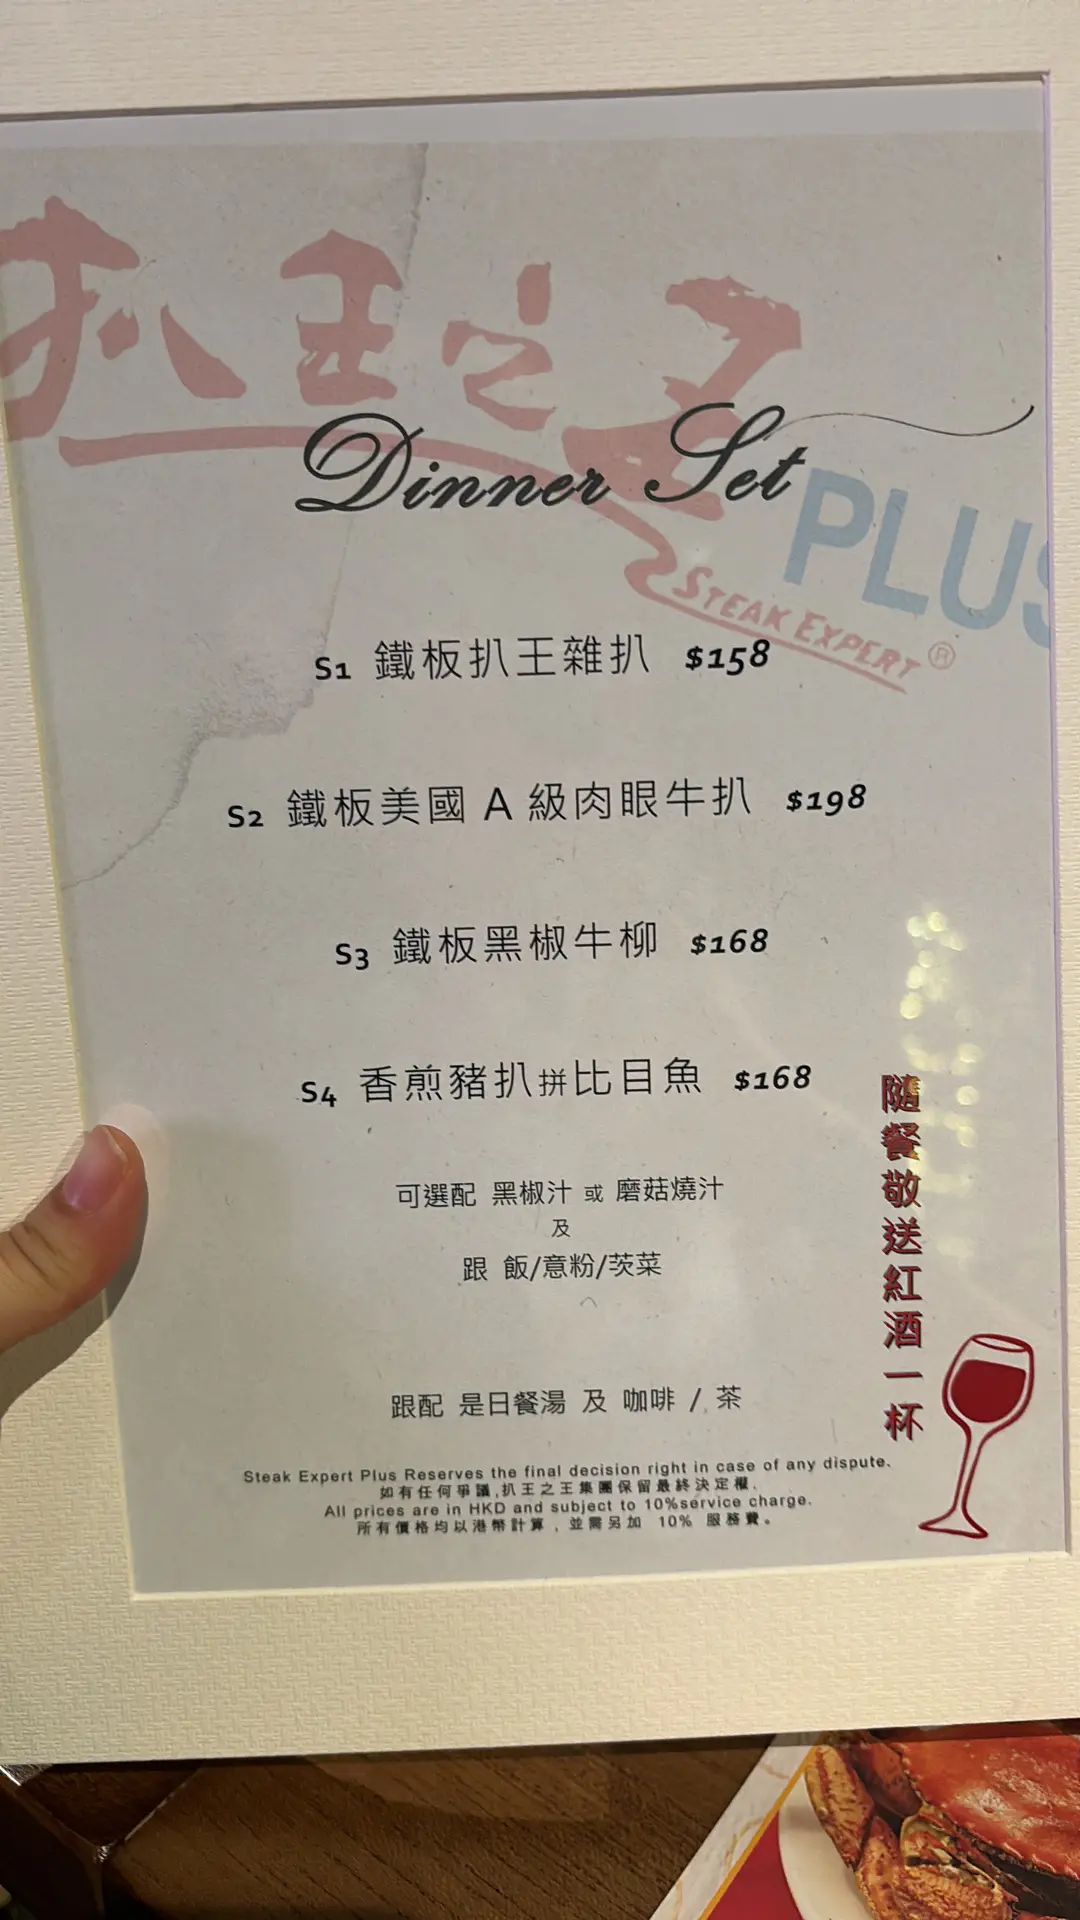 扒王之王
Dinner Set
PLUS
STEAK EXPERT®
S1 鐵板扒王雜扒 $158
S2 鐵板美國 A 級肉眼牛扒 $198
S3 鐵板黑椒牛柳 $168
S4 香煎豬扒拼比目魚 $168
可選配 黑椒汁 或 磨菇燒汁
及
跟 飯/意粉/茨菜
跟配 是日餐湯 及 咖啡 / 茶
隨餐敬送紅酒一杯
Steak Expert Plus Reserves the final decision right in case of any dispute.
如有任何爭議,扒王之王集團保留最終決定權.
All prices are in HKD and subject to 10%service charge.
所有價格均以港幣計算，並需另加 10% 服務費。